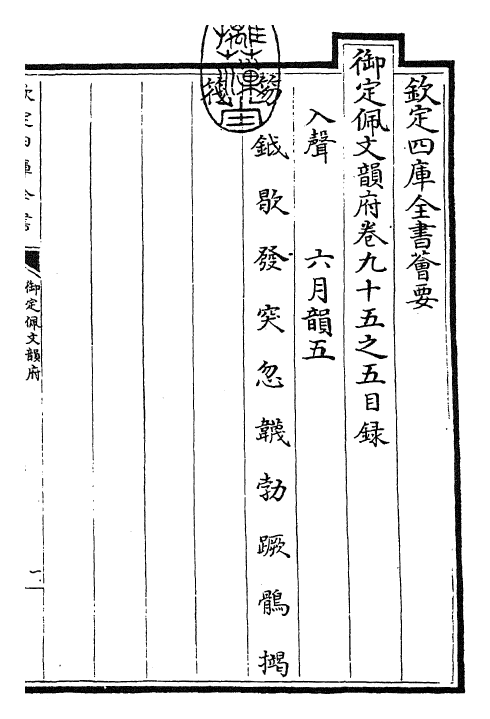 欽定四庫全書薈要
御定佩文韻府卷九十五之五目錄
入聲 六月韻五
鉞 歇 發 突 忽 韈 勃 蹶 鶻 揭
欽定四庫全書
御定佩文韻府
一